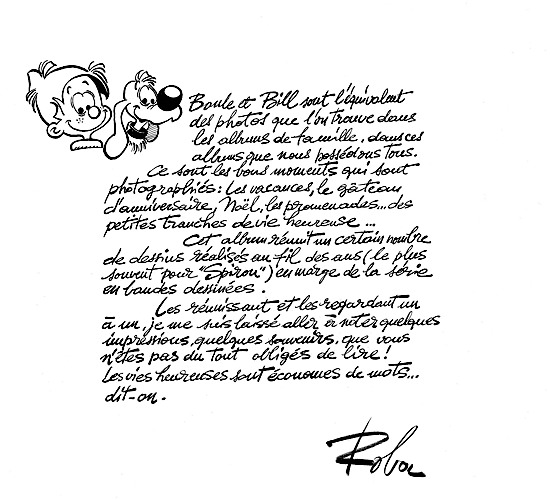 Boule et Bill sont l'équivalent
des photos que l'on trouve dans
les albums de famille, dans ces
albums que nous possédons tous.
Ce sont les bons moments qui sont
photographiés : les vacances, le gâteau
d'anniversaire, Noël, les promenades... des
petites tranches de vie heureuse...
Cet album réunit un certain nombre
de dessins réalisés au fil des ans (le plus
souvent pour "Spirou") en marge de la série
en bandes dessinées.
Les réunissant et les regardant un
à un, je me suis laissé aller à noter quelques
impressions, quelques souvenirs, que vous
n'êtes pas du tout obligés de lire !
Les vies heureuses sont économes de mots...
dit-on.
Roba